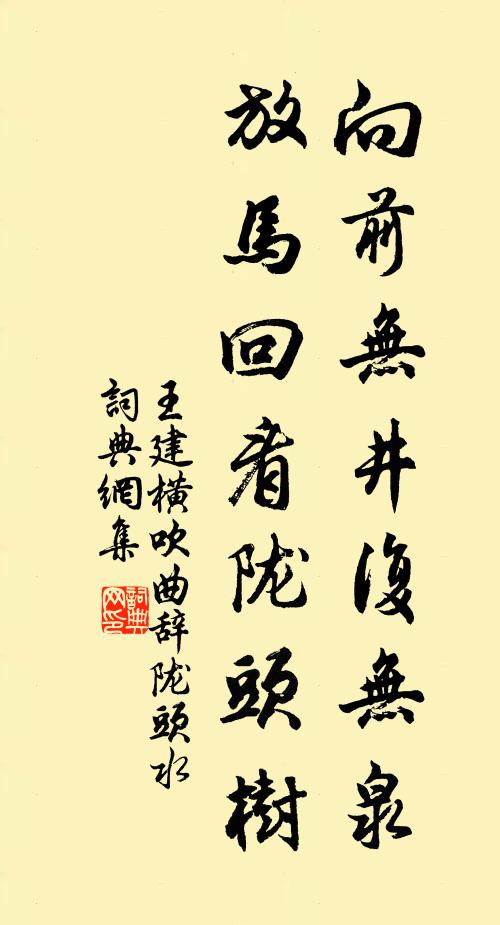 向前無井復無泉
放馬回看陇頭樹
王建橫吹曲辞陇頭水
詞典網集
詞典网印